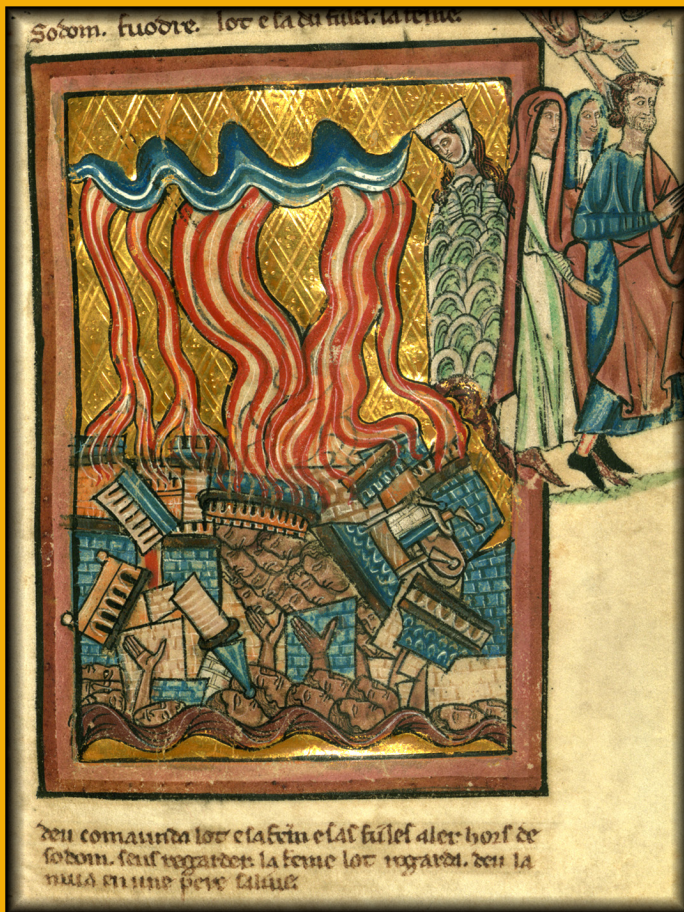 Sodom. fuodre. lot e sa du fillel. la feme.
deu comaunda lot e sa fem e sas filles aler hors de
sodom. sens regarder. la feme lot regarda. deu la
mua en une pere salius.